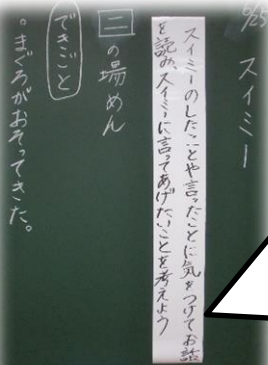 6/25
スイミー
スイミーのしたことや言ったことに気をつけてお話
を読み、スイミーに言ってあげたいことを考えよう
二の場めん
できごと
。まぐろがおそってきた。